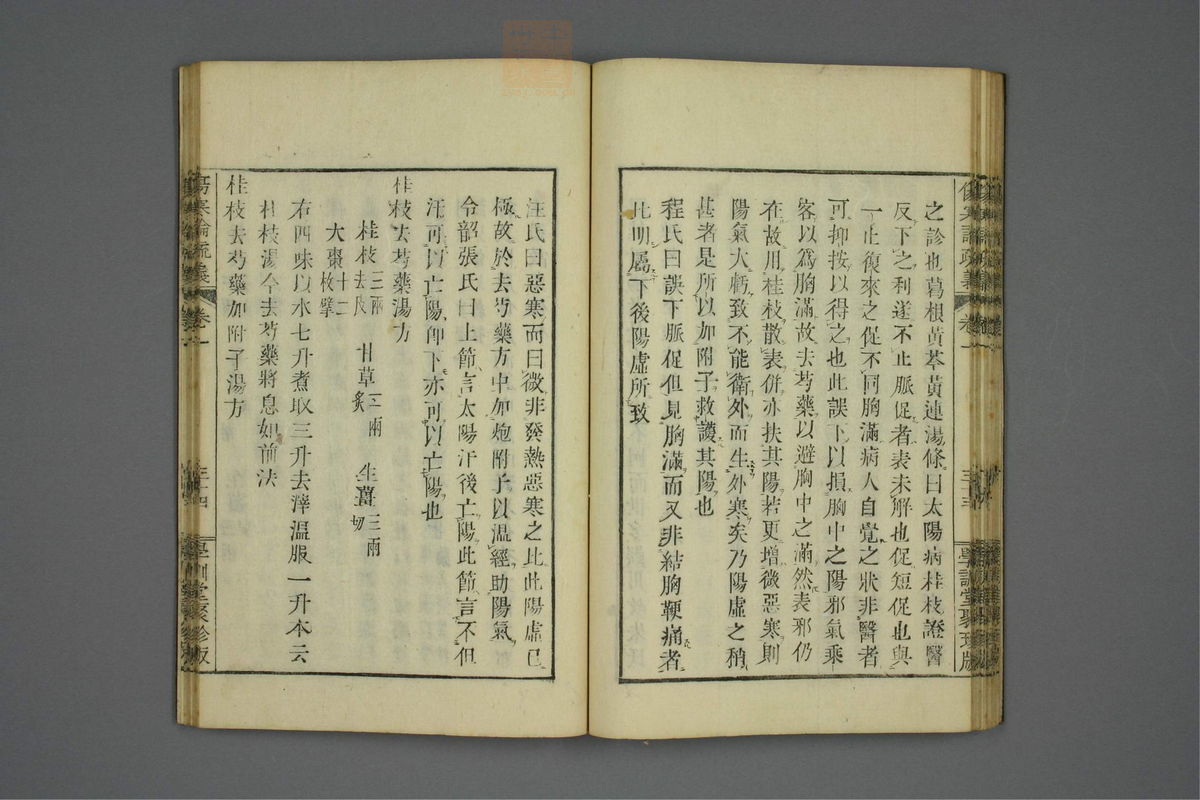 之診也葛根黃芩黃連湯條曰太陽病桂枝證醫
反下之利遂不止脈促者表未解也促短促也與
一止復來之促不同胸滿病人自覺之狀非醫者
可抑按以得之也此誤下以損胸中之陽邪氣乘
客以爲胸滿故去芍藥以避胸中之滿然表邪仍
在故用桂枝散表併亦扶其陽若更增微惡寒則
陽氣大虧致不能衛外而生外寒矣乃陽虛之稍
甚者是所以加附子救護其陽也
程氏曰誤下脈促但見胸滿而又非結胸鞕痛者
此明屬下後陽虛所致
汪氏曰惡寒而曰微非發熱惡寒之比此陽虛已
極故於去芍藥方中加炮附子以溫經助陽氣
令韶張氏曰上節言太陽汗後亡陽此節言不但
汗可以亡陽卽下亦可以亡陽也
桂枝去芍藥湯方
桂枝三兩去皮 甘草二兩炙 生薑三兩切
大棗十二枚擘
右四味以水七升煮取三升去滓溫服一升本云
桂枝湯今去芍藥將息如前法
桂枝去芍藥加附子湯方
傷寒論疏義 卷一 三十四 學訓堂聚珍版